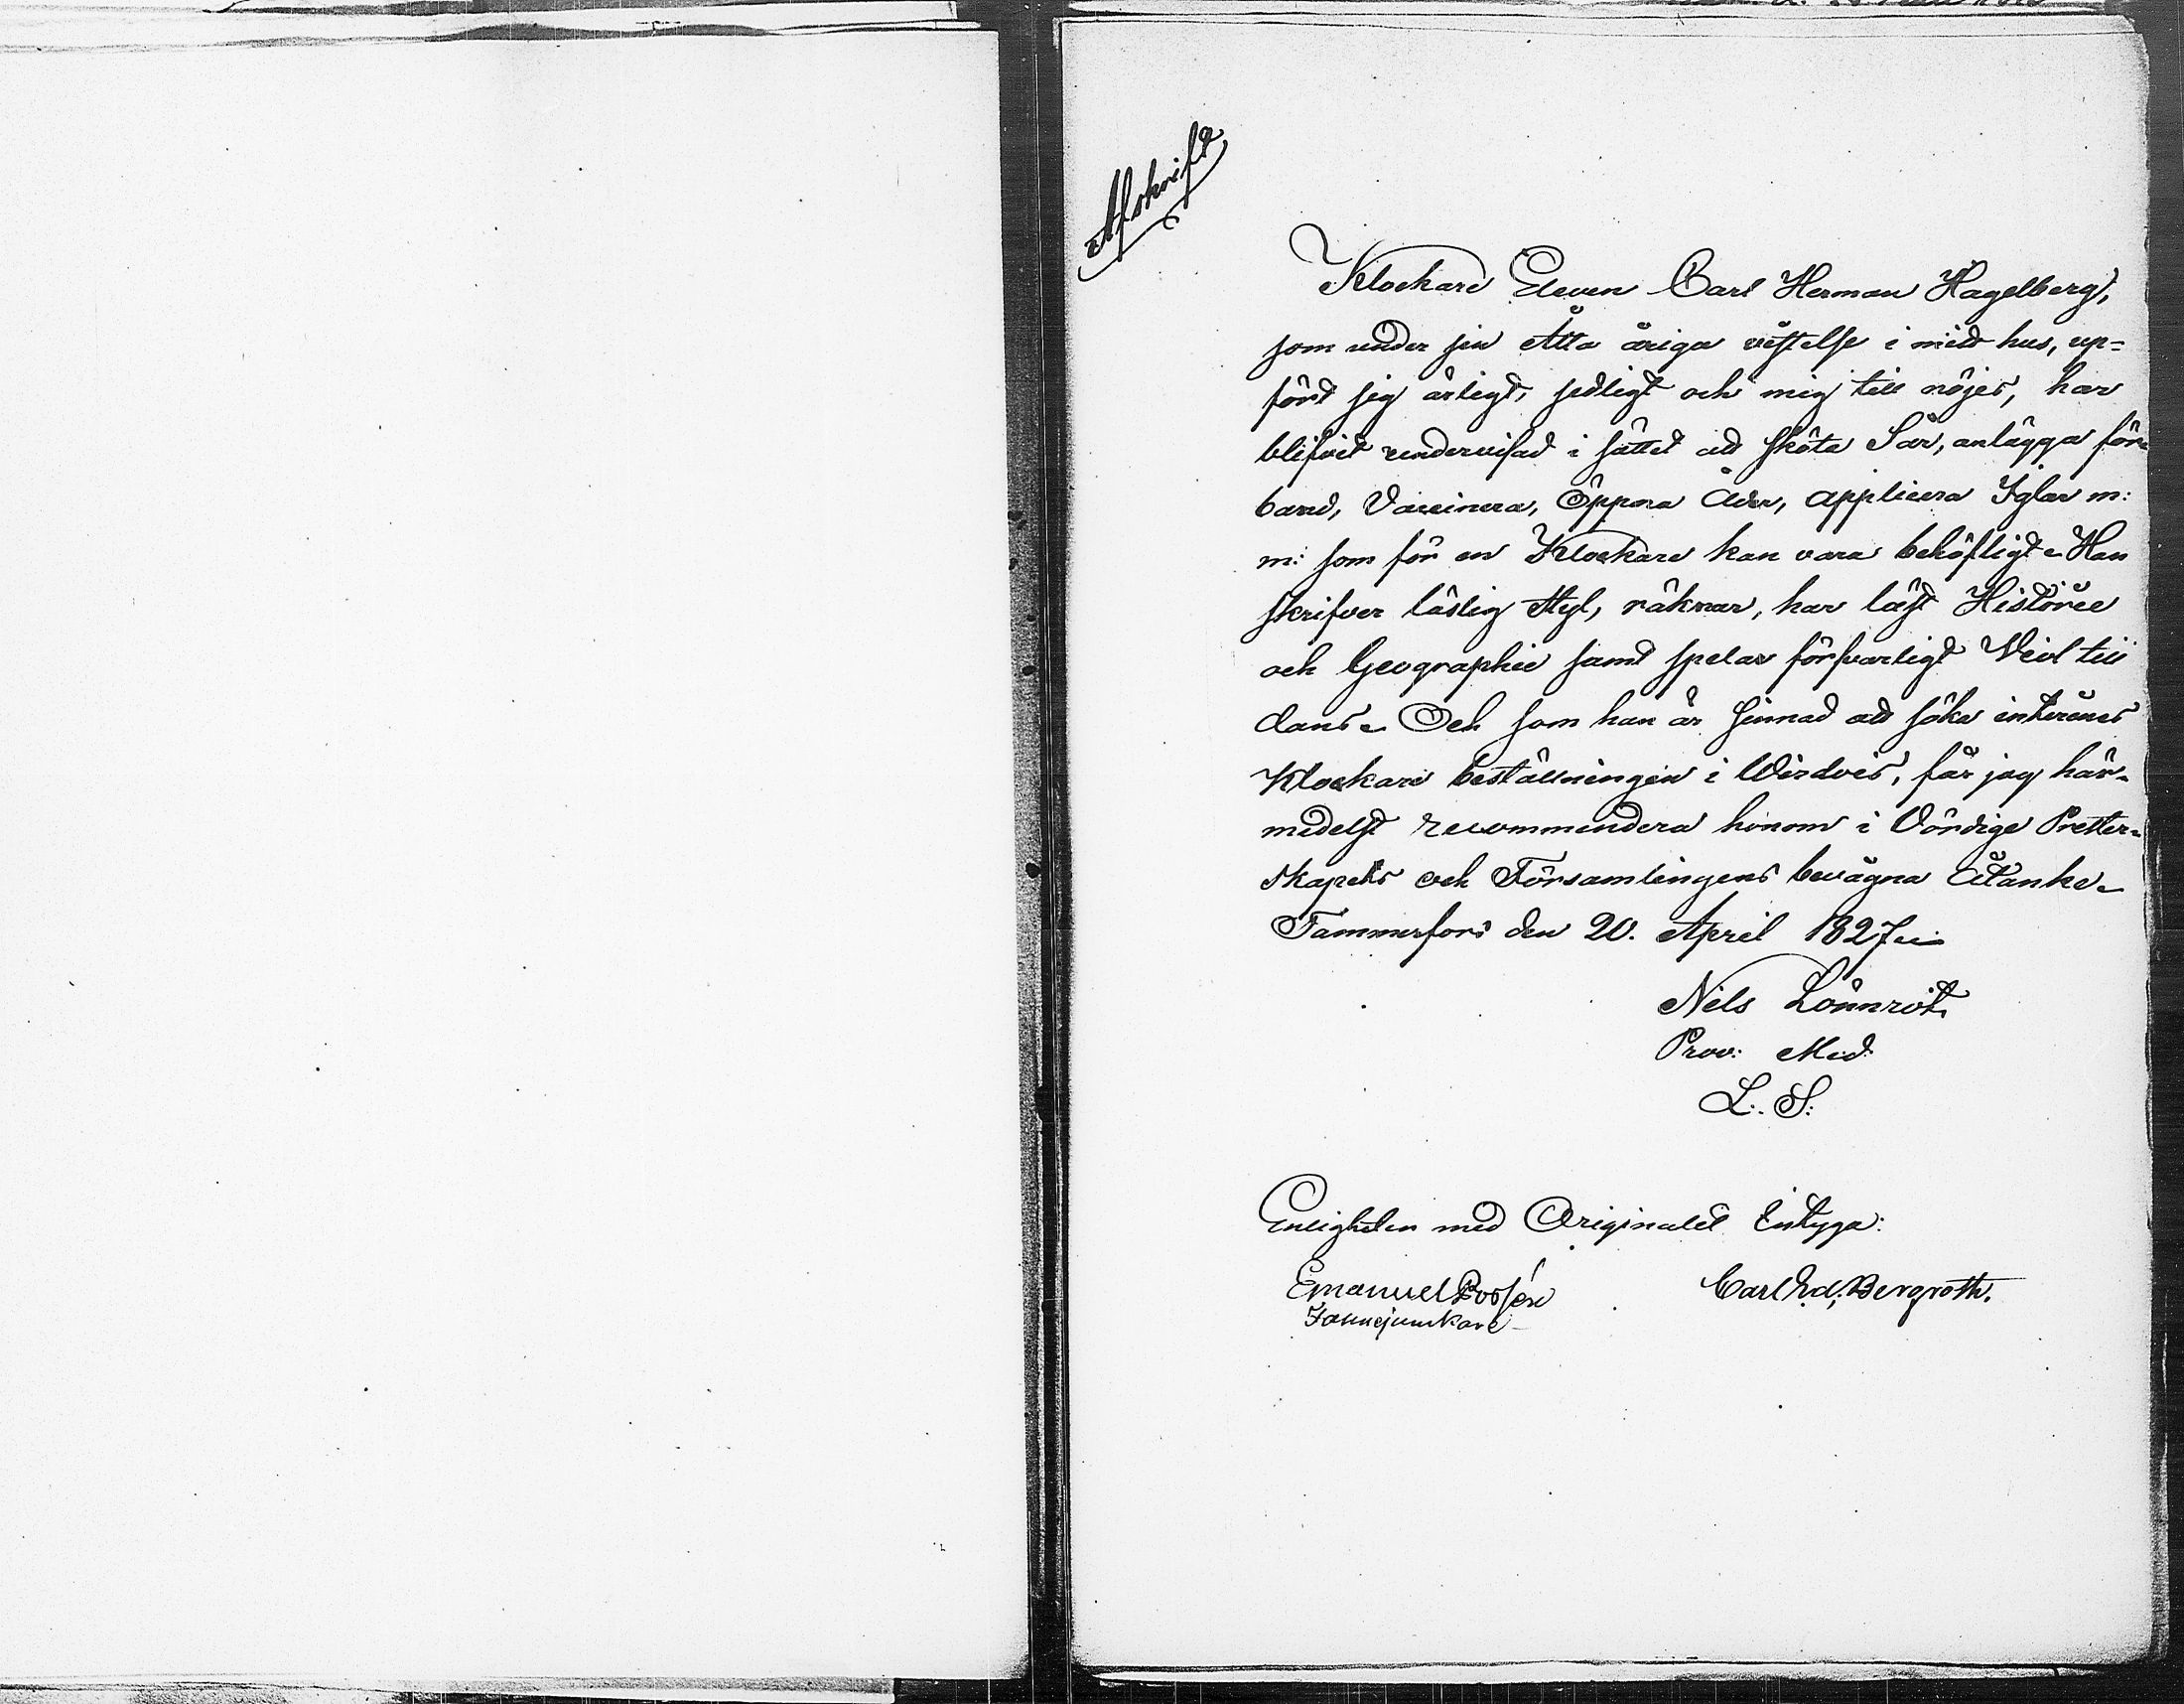 Afskrift
Klockare Eleven Carl Herman Hagelberg,
som under sin Åtta åriga vistelse i mitt hus, up=
fört sig ärligt, sedligt och mig till nöjes, har
blifvit undervisad i sättet att sköta Sår, anlägga för-
band, Vaccinera, Öppna Åder, applicera Iglar m:
m: som för en Klockare kan vara behöfligt. Han
skrifver läslig Styl, räknar, har läst Historie
och Geographie samt spelar försvarligt Viol till
dans. Och som han är sinnad att söka
Klockare beställningen i Wirdois, får jag här-
medelst recommendera honom i Vördige Prester-
skapets och Församlingens bevägna Åtanke.
Tammerfors den 20. April 1827.
Nils Lönnrot
Prov: Med:
L. S:
Enligheten med Originalet Intyga:
Emanuel Bosén Carl Ed. Bergroth.
Fanejunkare